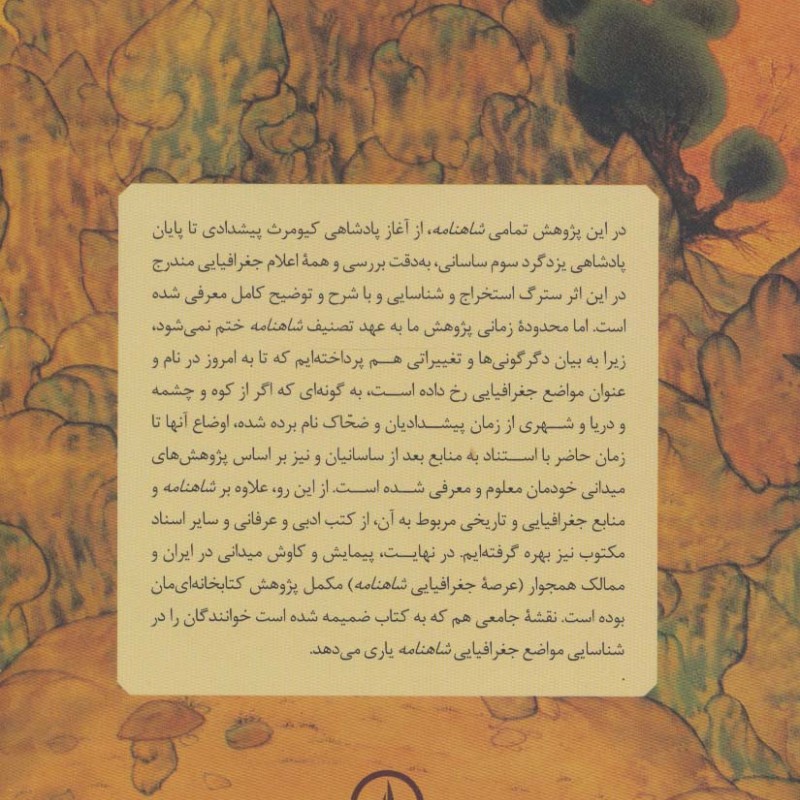 در این پژوهش تمامی شاهنامه، از آغاز پادشاهی کیومرث پیشدادی تا پایان
پادشاهی یزدگرد سوم ساسانی، به‌دقت بررسی و همهٔ اعلام جغرافیایی مندرج
در این اثر سترگ استخراج و شناسایی و با شرح و توضیح کامل معرفی شده
است. اما محدودهٔ زمانی پژوهش ما به عهد تصنیف شاهنامه ختم نمی‌شود،
زیرا به بیان دگرگونی‌ها و تغییراتی هم پرداخته‌ایم که تا به امروز در نام و
عنوان مواضع جغرافیایی رخ داده است، به گونه‌ای که اگر از کوه و چشمه
و دریا و شهری از زمان پیشدادیان و ضحّاک نام برده شده، اوضاع آنها تا
زمان حاضر با استناد به منابع بعد از ساسانیان و نیز بر اساس پژوهش‌های
میدانی خودمان معلوم و معرفی شده است. از این رو، علاوه بر شاهنامه و
منابع جغرافیایی و تاریخی مربوط به آن، از کتب ادبی و عرفانی و سایر اسناد
مکتوب نیز بهره گرفته‌ایم. در نهایت، پیمایش و کاوش میدانی در ایران و
ممالک همجوار (عرصهٔ جغرافیایی شاهنامه) مکمل پژوهش کتابخانه‌ای‌مان
بوده است. نقشهٔ جامعی هم که به کتاب ضمیمه شده است خوانندگان را در
شناسایی مواضع جغرافیایی شاهنامه یاری می‌دهد.
.